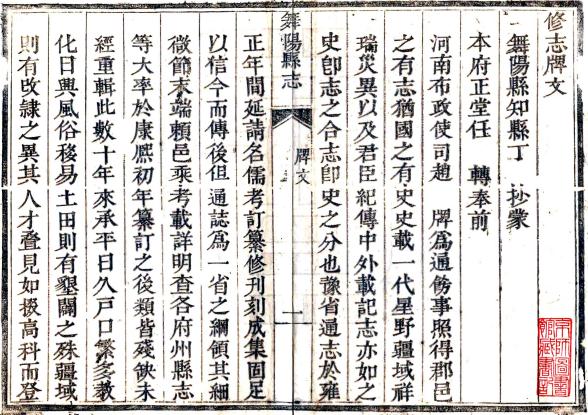 修志牌文
舞陽縣知縣丁 抄蒙
本府正堂任 轉奉前
河南布政使司趙 牌爲通飭事照得郡邑
之有志猶國之有史史載一代星野疆域祥
瑞災異以及君臣紀傳中外載記志亦如之
史卽志之合志卽史之分也豫省通志於雍
舞陽縣志
牌文
一
正年間延請名儒考訂纂修刊刻成集固足
以信今而傳後但通誌爲一省之綱領其細
微節末端賴邑乘考載詳明查各府州縣志
等大率於康熈初年纂訂之後類皆殘缺未
經重輯此數十年來承平日久戶口繁多教
化日興風俗移易土田則有墾闢之殊疆域
則有改隸之異其人才疊見如掇高科而登
京師圖書
館藏書記